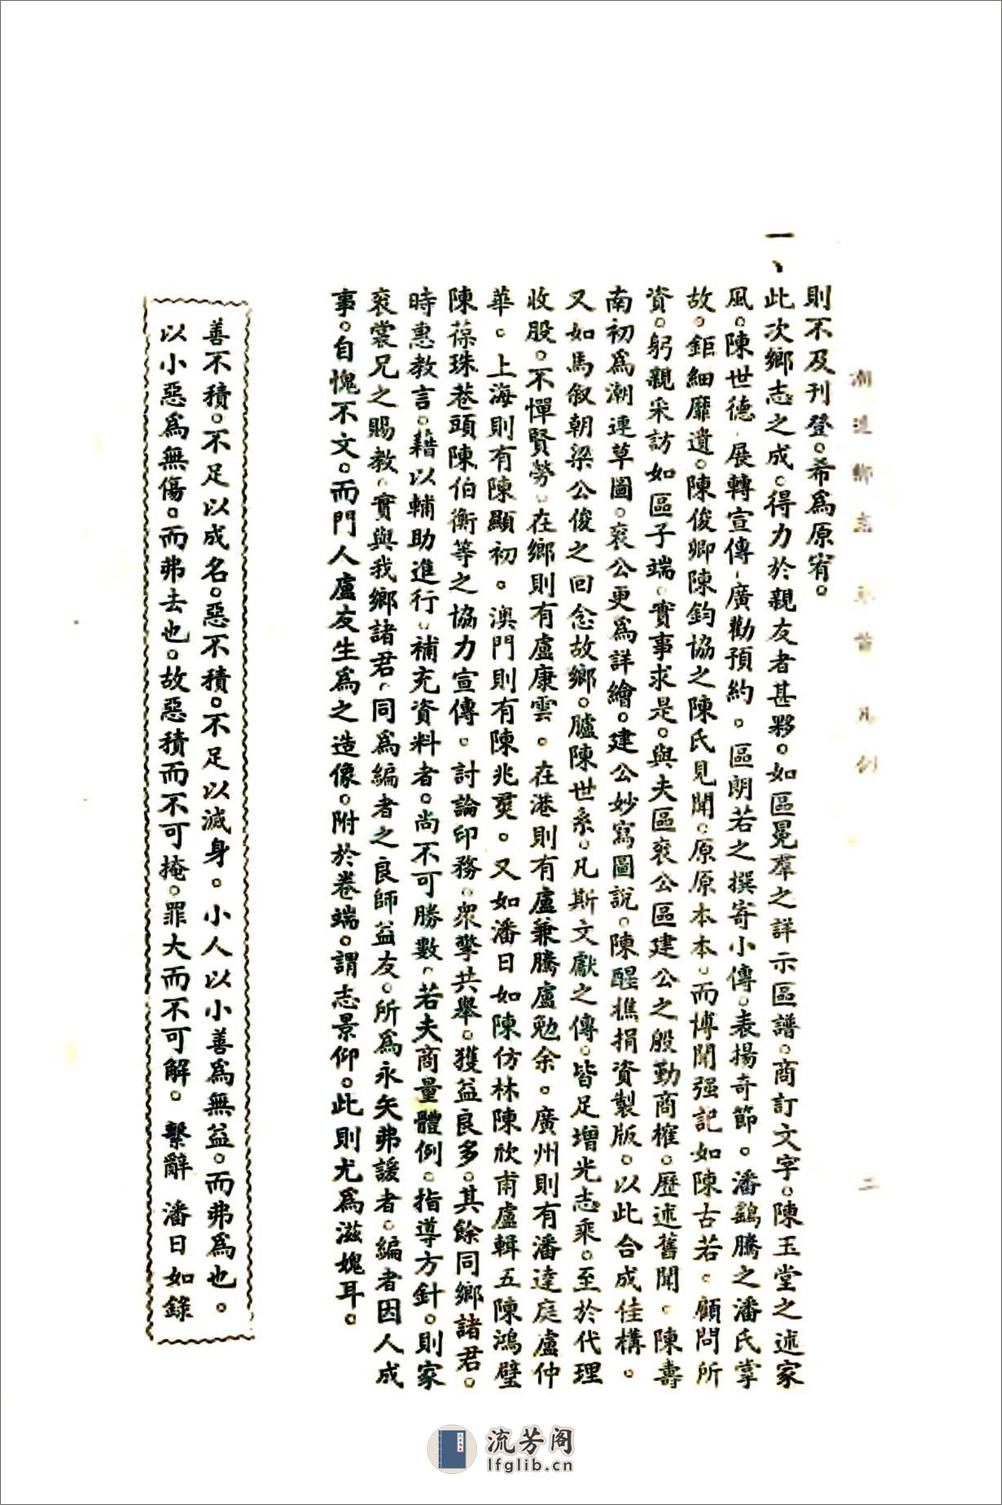 潮連鄉志 卷首 凡例 二
則不及刊登。希爲原宥。
一、此次鄉志之成。得力於親友者甚夥。如區冕羣之詳示區譜。商訂文字。陳玉堂之述家
風。陳世德展轉宣傳。廣勸預約。區朗若之撰寄小傳。表揚奇節。潘鷂騰之潘氏掌
故。鉅細靡遺。陳俊卿陳鈞協之陳氏見聞。原原本本。而博聞强記如陳古若。顧問所
資。躬親采訪如區子端。實事求是。與夫區袞公區建公之殷勤商榷。歷述舊聞。陳壽
南初爲潮連草圖。袞公更爲詳繪。建公妙寫圖說。陳醒樵捐資製版。以此合成佳構。
又如馬叙朝梁公俊之回念故鄉。臚陳世系。凡斯文獻之傳。皆足增光志乘。至於代理
收股。不憚賢勞。在鄉則有盧康雲。在港則有盧兼騰盧勉余。廣州則有潘達庭盧仲
華。上海則有陳顯初。澳門則有陳兆燛。又如潘日如陳仿林陳欣甫盧輯五陳鴻璧
陳葆珠巷頭陳伯衡等之協力宣傳。討論印務。衆擎共舉。獲益良多。其餘同鄉諸君。
時惠教言。藉以輔助進行。補充資料者。尚不可勝數。若夫商量體例。指導方針。則家
袞裳兄之賜教。實與我鄉諸君。同爲編者之良師益友。所爲永矢弗諼者。編者因人成
事。自愧不文。而門人盧友生爲之造像。附於卷端。謂志景仰。此則尤爲滋媿耳。
善不積。不足以成名。惡不積。不足以滅身。小人以小善爲無益。而弗爲也。
以小惡爲無傷。而弗去也。故惡積而不可掩。罪大而不可解。繫辭 潘日如錄
流芳阁
lfglib.cn